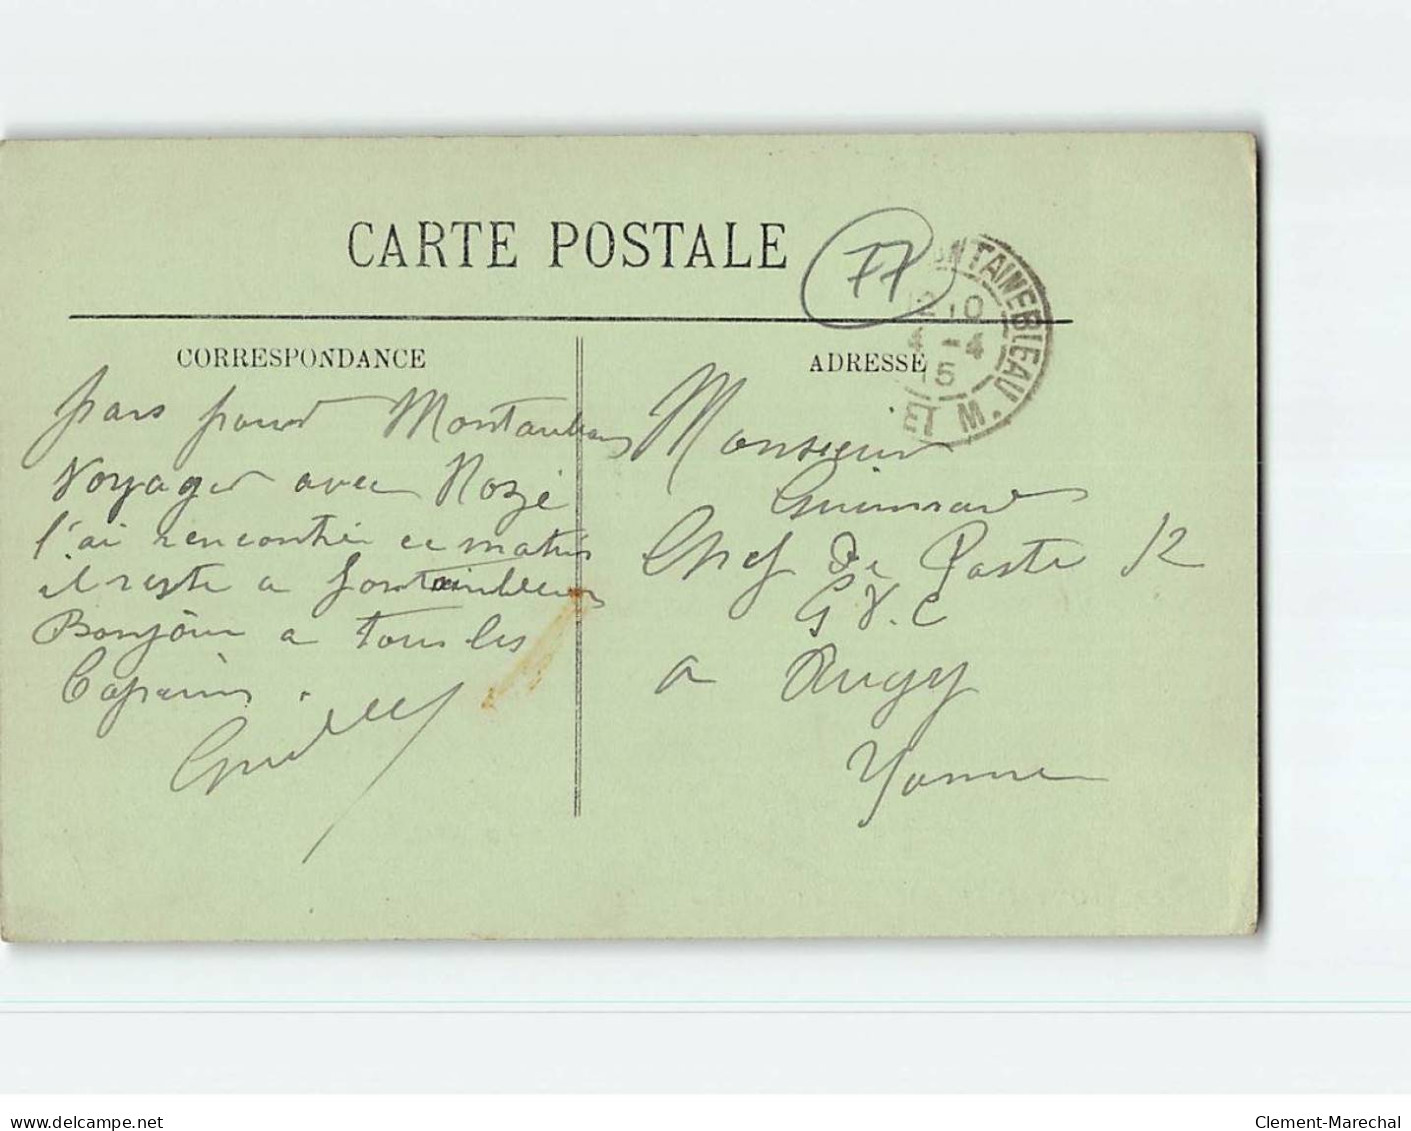 CARTE POSTALE
77
FONTAINEBLEAU
12 10
4 - 4
15
ET M.
CORRESPONDANCE
ADRESSE
pars pour Montauban
Voyager avec Rozé
l'ai rencontré ce matin
il reste a fontainbleau
Bonjour a tous les
Copains.
Monsieur
Chef De Poste 12
G V. C
a
Yonne
www.delcampe.net
Clement-Marechal